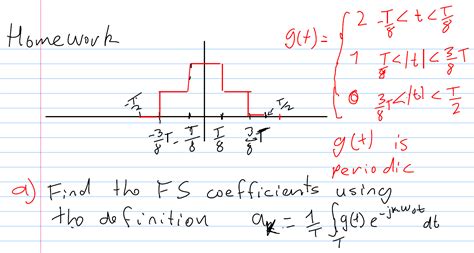 Homework
g(t) = { 2 -T/8 < t < T/8
1 T/8 < |t| < 3/8 T
0 3/8 T < |t| < T/2
-T/2 T/2
-3/8 T -T/8 T/8 3/8 T
g(t) is
periodic
a) Find the FS coefficients using
the definition a_k = 1/T ∫_T g(t) e^{-jkω₀t} dt